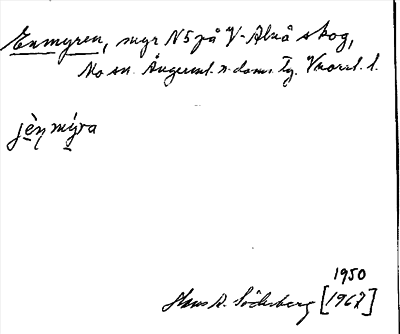 Enmyren, myr N5 på V-Alnå skog,
Mo sn. Ångerml. n. doms. Tg. Vnorrl. l.
jèn mýra
1950
Hans A. Söderberg [1967]